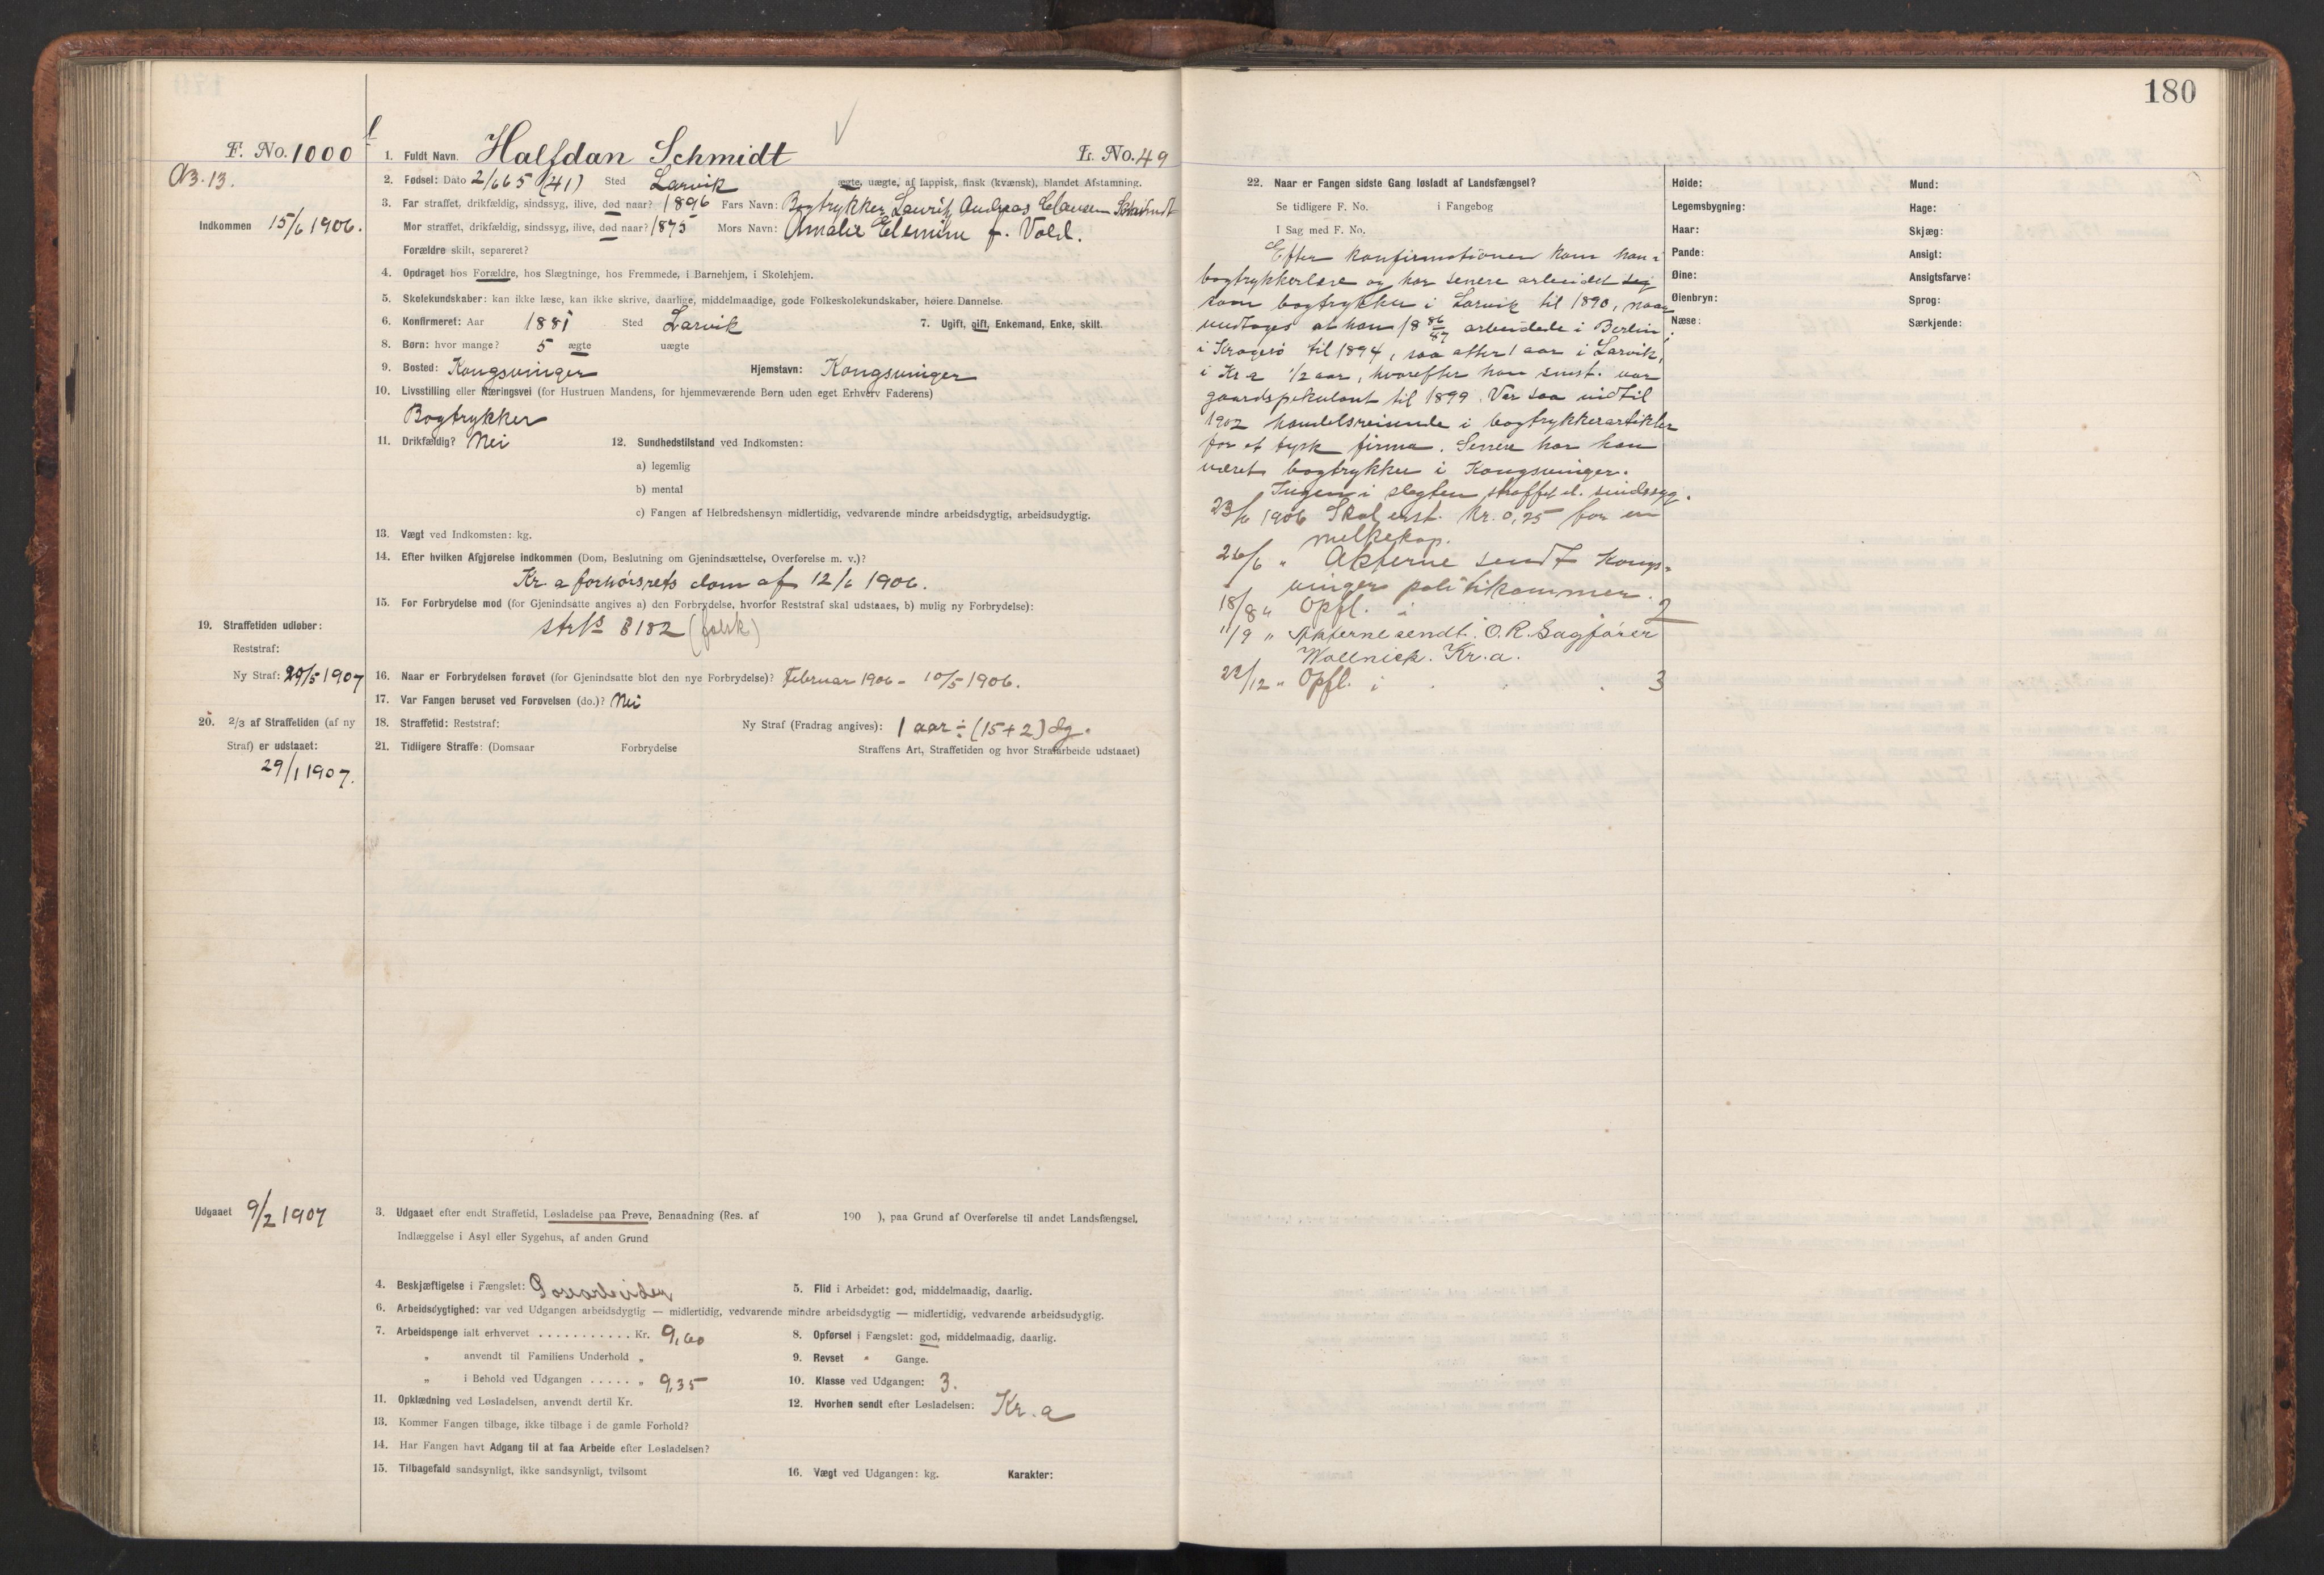 180
F. No. 1000
1. Fuldt Navn. Halfdan Schmidt
L. No. 49
A3.13.
2. Fødsel: Dato 2/6 65 (41) Sted Larvik ægte, uægte, af lappisk, finsk (kvænsk), blandet Afstamning.
3. Far straffet, drikfældig, sindssyg, ilive, død naar? 1896 Fars Navn: Bogtrykker Lauritz Andreas Clausen Schmidt
Indkommen 15/6 1906.
Mor straffet, drikfældig, sindssyg, ilive, død naar? 1875 Mors Navn: Amalie Elemine f. Vold.
Forældre skilt, separeret?
4. Opdraget hos Forældre, hos Slægtninge, hos Fremmede, i Barnehjem, i Skolehjem.
5. Skolekundskaber: kan ikke læse, kan ikke skrive, daarlige, middelmaadige, gode Folkeskolekundskaber, høiere Dannelse.
6. Konfirmeret: Aar 1881 Sted Larvik 7. Ugift, gift, Enkemand, Enke, skilt.
8. Børn: hvor mange? 5 ægte uægte
9. Bosted: Kongsvinger Hjemstavn: Kongsvinger
10. Livsstilling eller Næringsvei (for Hustruen Mandens, for hjemmeværende Børn uden eget Erhverv Faderens)
Bogtrykker
11. Drikfældig? Nei 12. Sundhedstilstand ved Indkomsten:
a) legemlig
b) mental
c) Fangen af Helbredshensyn midlertidig, vedvarende mindre arbeidsdygtig, arbeidsudygtig.
13. Vægt ved Indkomsten: kg.
14. Efter hvilken Afgjørelse indkommen (Dom, Beslutning om Gjenindsættelse, Overførelse m. v.)?
Kr.a forhørsrets dom af 12/6 1906.
15. For Forbrydelse mod (for Gjenindsatte angives a) den Forbrydelse, hvorfor Reststraf skal udstaaes, b) mulig ny Forbrydelse):
strfl § 182 (falsk)
19. Straffetiden udløber:
Reststraf:
Ny Straf: 29/5 1907
16. Naar er Forbrydelsen forøvet (for Gjenindsatte blot den nye Forbrydelse)? Februar 1906 - 10/5 1906.
17. Var Fangen beruset ved Forøvelsen (do.)? Nei
20. 2/3 af Straffetiden (af ny
Straf) er udstaaet:
29/1 1907.
18. Straffetid: Reststraf: Ny Straf (Fradrag angives): 1 aar ÷ (15+2) dg.
21. Tidligere Straffe: (Domsaar Forbrydelse Straffens Art, Straffetiden og hvor Strafarbeide udstaaet)
Udgaaet 9/2 1907
3. Udgaaet efter endt Straffetid, Løsladelse paa Prøve, Benaadning (Res. af 190 ), paa Grund af Overførelse til andet Landsfængsel,
Indlæggelse i Asyl eller Sygehus, af anden Grund
4. Beskjæftigelse i Fængslet: Posearbeider 5. Flid i Arbeidet: god, middelmaadig, daarlig.
6. Arbeidsdygtighed: var ved Udgangen arbeidsdygtig — midlertidig, vedvarende mindre arbeidsdygtig — midlertidig, vedvarende arbeidsudygtig.
7. Arbeidspenge ialt erhvervet . . . . . . . . . . . Kr. 9,60 8. Opførsel i Fængslet: god, middelmaadig, daarlig.
„ anvendt til Familiens Underhold „ 9. Revset " Gange.
„ i Behold ved Udgangen . . . . . „ 9,35 10. Klasse ved Udgangen: 3.
11. Opklædning ved Løsladelsen, anvendt dertil Kr. 12. Hvorhen sendt efter Løsladelsen: Kr.a
13. Kommer Fangen tilbage, ikke tilbage i de gamle Forhold?
14. Har Fangen havt Adgang til at faa Arbeide efter Løsladelsen?
15. Tilbagefald sandsynligt, ikke sandsynligt, tvilsomt 16. Vægt ved Udgangen: kg. Karakter:
22. Naar er Fangen sidste Gang løsladt af Landsfængsel?
Se tidligere F. No. i Fangebog
I Sag med F. No.
Efter konfirmationen kom han i
bogtrykkerlære og har senere arbeidet seg
som bogtrykker i Larvik til 1890, naar
undtages at han 18 86/87 arbeidede i Berlin;
i Kragerø til 1894, saa atter 1 aar i Larvik,
i Kr.a 1/2 aar, hvorefter han smst. var
gaardspekulant til 1899. Var saa indtil
1902 handelsreisende i bogtrykkerartikler
for et tysk firma. Senere har han
været bogtrykker i Kongsvinger.
Ingen i slegten straffet el. sindssyg.
23/6 1906 Skal erst. Kr. 0,25 for en
melkekop.
26/6 " Akterne sendt Kongs-
vinger politikammer.
18/8 " Opfl. i 2
11/9 " Akterne sendt O.R. Sagfører
Wollnick. Kr.a.
22/12 " Opfl. i . . 3
Høide: Mund:
Legemsbygning: Hage:
Haar: Skjæg:
Pande: Ansigt:
Øine: Ansigtsfarve:
Øienbryn: Sprog:
Næse: Særkjende: